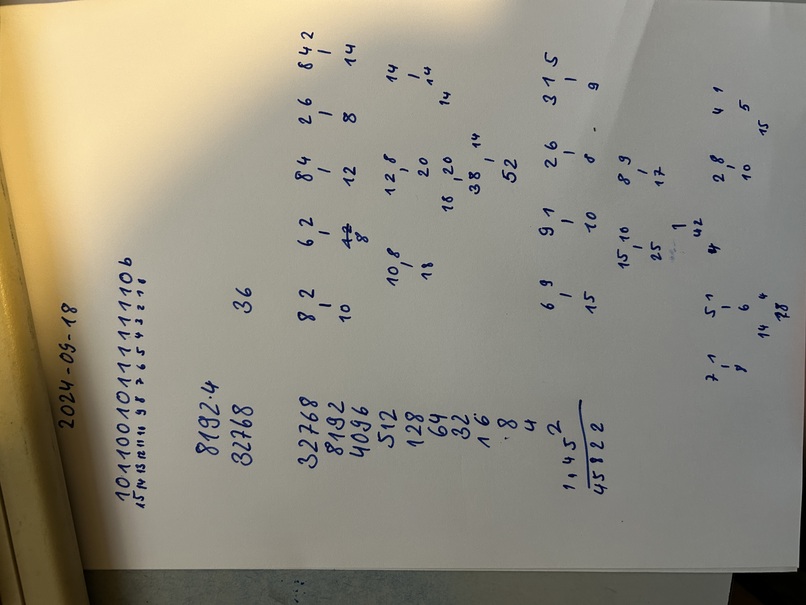 2024-09-18
1011001011111110b
15 14 13 12 11 10 9 8 7 6 5 4 3 2 1 0
8192·4
32768 36
32768 8 2 6 2 8 4 2 6 8 4 2
8192
4096 10 12 12 8 14
8
512 10,8 12,8 14
128 18 20 14
64 18 20 14
32 38 14
16
8 52
4
2 6 9 9 1 2 6 3 1 5
1 1 4 5
45822 15 10 8 9
15 10 8 9
25 17
1
42
4
7 1 5 1 2 8 4 1
6 10 5
14 4 15